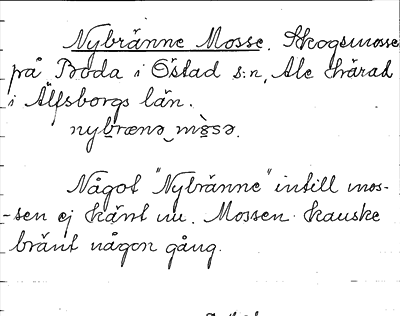 Nybränne Mosse. Skogsmosse
på Boda i Östad s:n, Ale härad
i Älfsborgs län.
nybrænə mòsə.
Något "Nybränne" intill mos-
-sen ej känt nu. Mossen kanske
bränt någon gång.